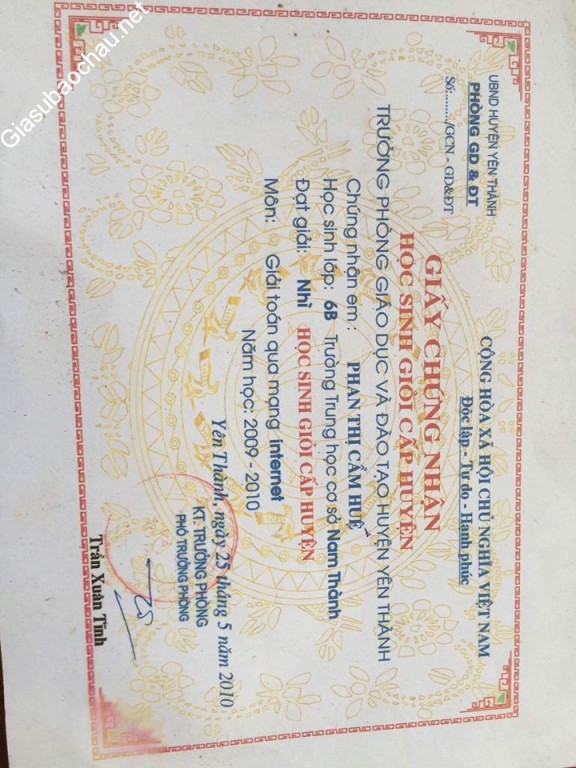 Giasubaochau.net
UBND HUYỆN YÊN THÀNH
PHÒNG GD & ĐT
Số:......../GCN - GD&ĐT
CỘNG HÒA XÃ HỘI CHỦ NGHĨA VIỆT NAM
Độc lập - Tự do - Hạnh phúc
GIẤY CHỨNG NHẬN
HỌC SINH GIỎI CẤP HUYỆN
TRƯỞNG PHÒNG GIÁO DỤC VÀ ĐÀO TẠO HUYỆN YÊN THÀNH
Chứng nhận em : PHAN THỊ CẨM HUẾ
Học sinh lớp: 6B Trường Trung học cơ sở Nam Thành
Đạt giải: Nhì HỌC SINH GIỎI CẤP HUYỆN
Môn: Giải toán qua mạng Internet
Năm học: 2009 - 2010
Yên Thành, ngày 25 tháng 5 năm 2010
KT. TRƯỞNG PHÒNG
PHÓ TRƯỞNG PHÒNG
Trần Xuân Tĩnh